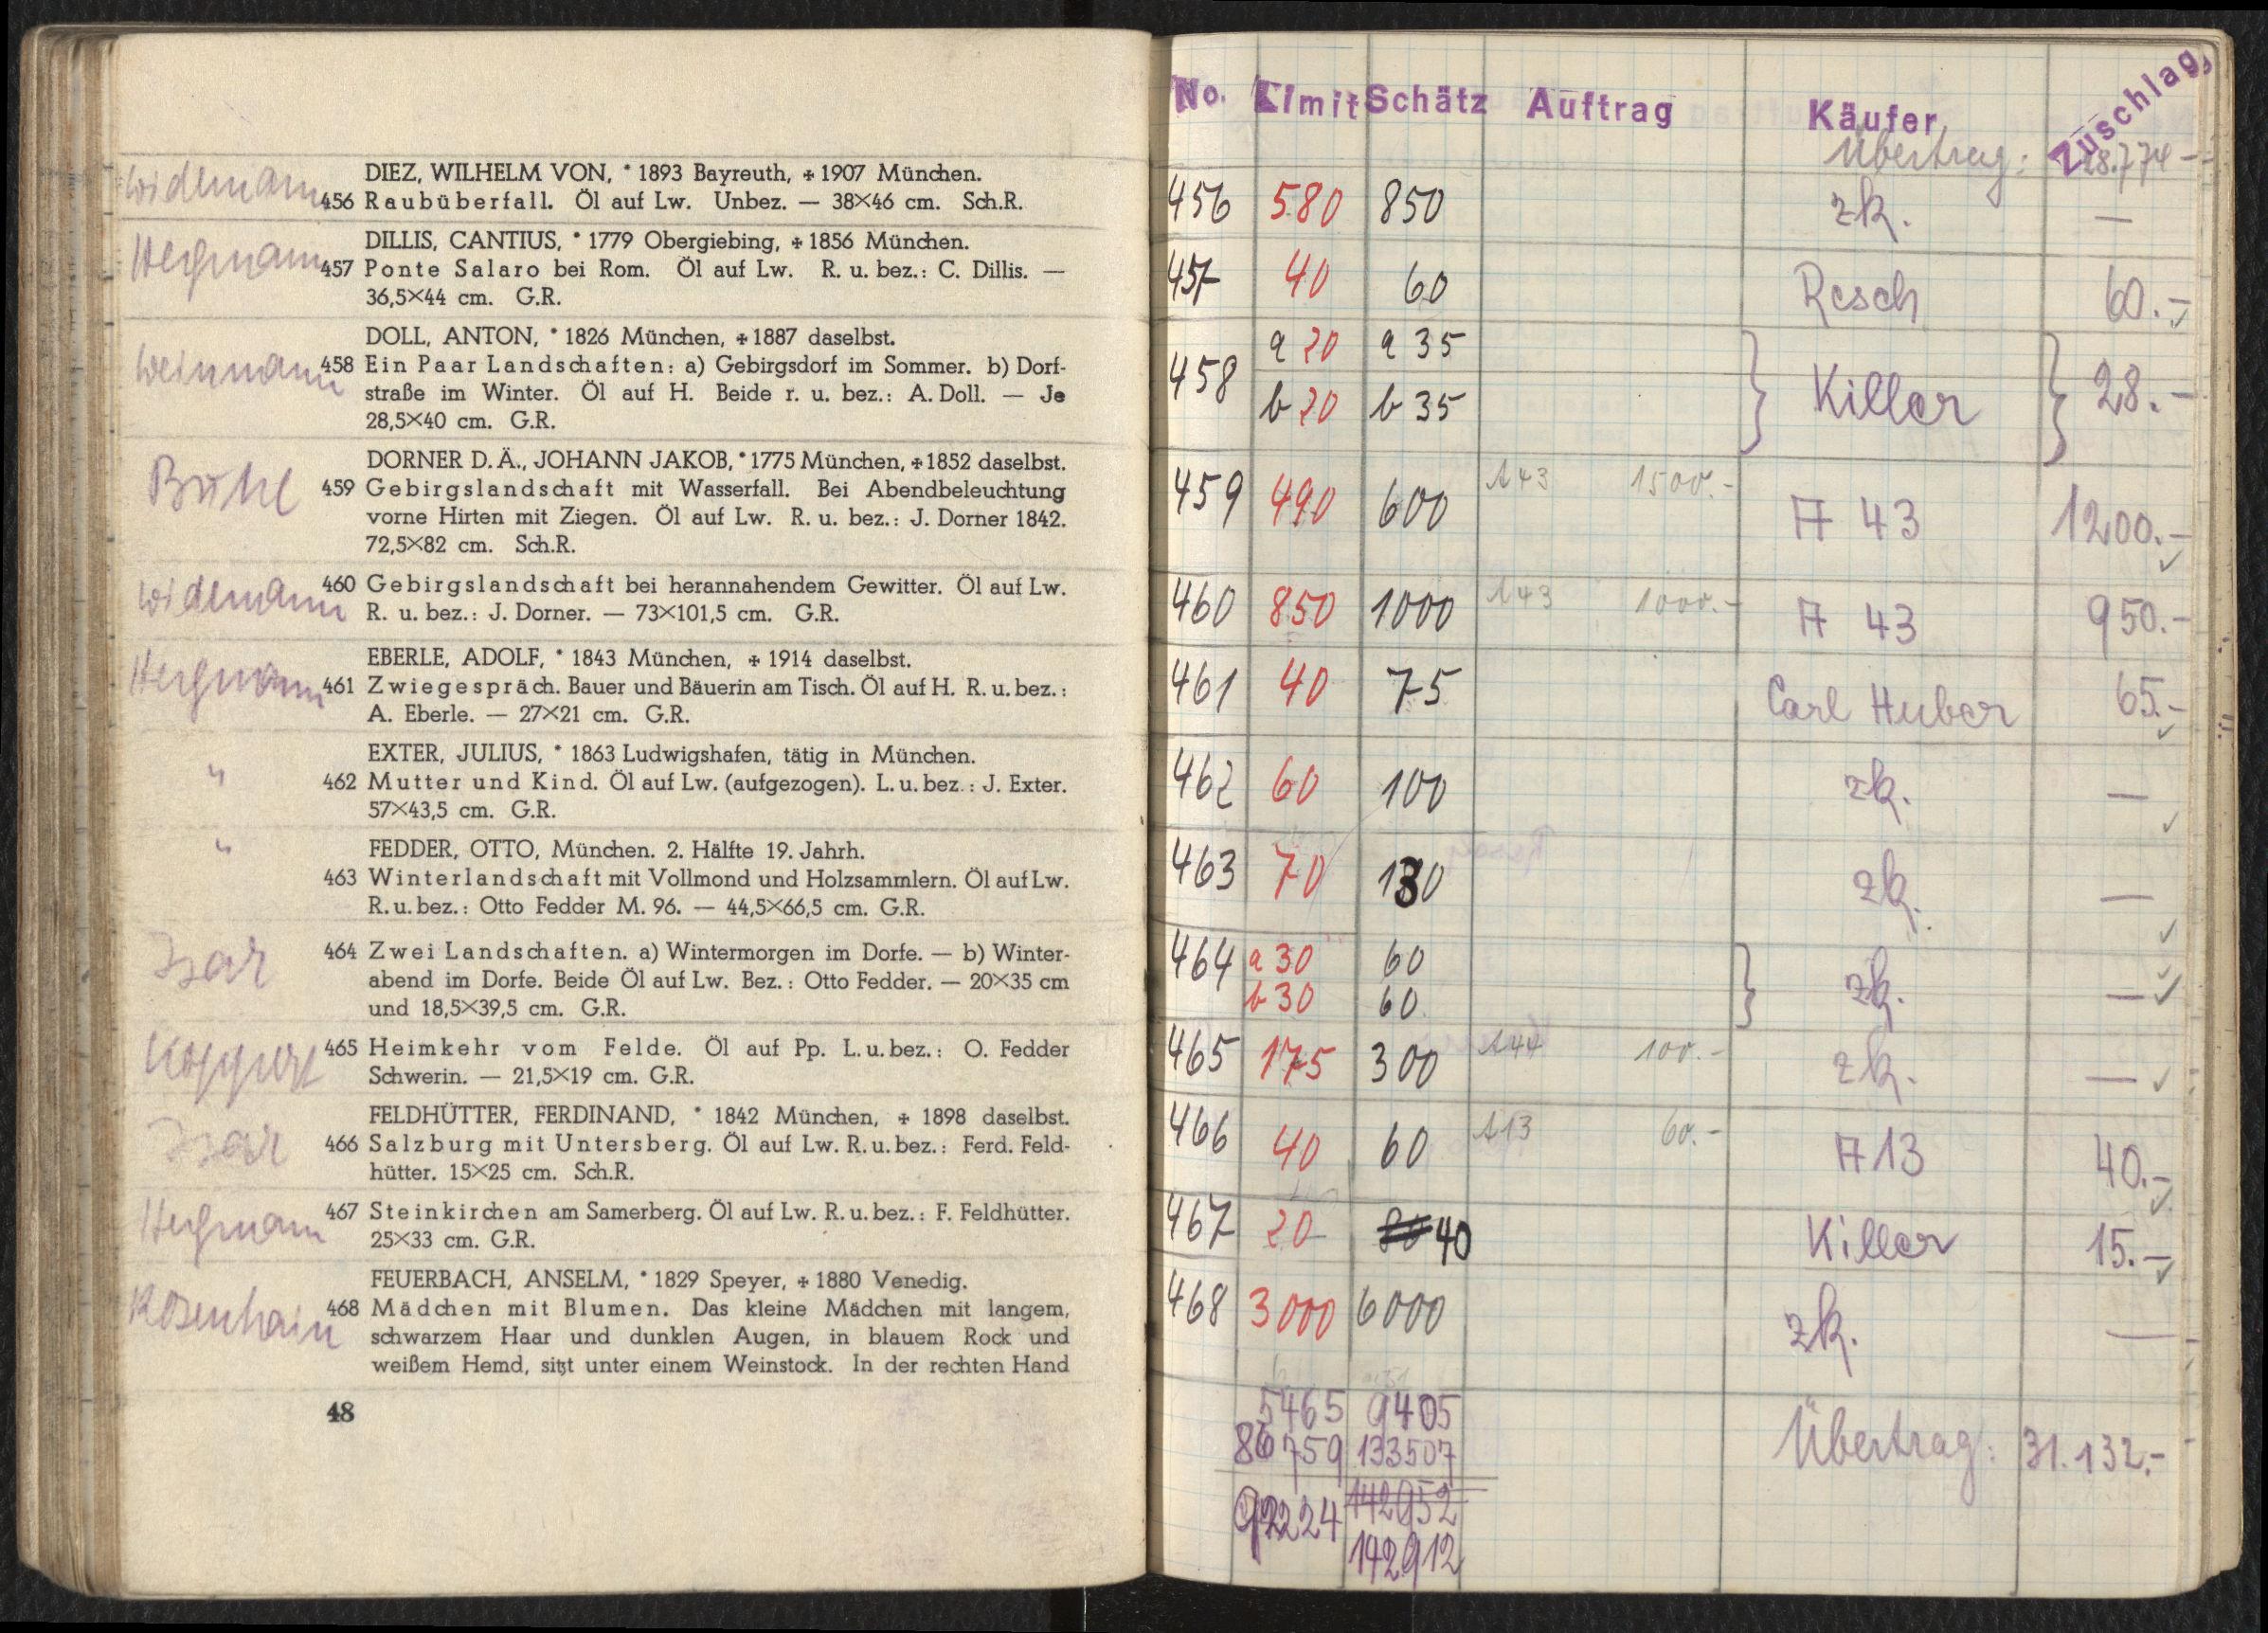 Widemann
DIEZ, WILHELM VON, * 1893 Bayreuth, ✠ 1907 München.
456 Raubüberfall. Öl auf Lw. Unbez. — 38×46 cm. Sch.R.
Hegmann
DILLIS, CANTIUS, * 1779 Obergiebing, ✠ 1856 München.
457 Ponte Salaro bei Rom. Öl auf Lw. R. u. bez.: C. Dillis. —
36,5×44 cm. G.R.
Weinmann
DOLL, ANTON, * 1826 München, ✠ 1887 daselbst.
458 Ein Paar Landschaften: a) Gebirgsdorf im Sommer. b) Dorf-
straße im Winter. Öl auf H. Beide r. u. bez.: A. Doll. — Je
28,5×40 cm. G.R.
DORNER D. Ä., JOHANN JAKOB, * 1775 München, ✠ 1852 daselbst.
459 Gebirgslandschaft mit Wasserfall. Bei Abendbeleuchtung
vorne Hirten mit Ziegen. Öl auf Lw. R. u. bez.: J. Dorner 1842.
72,5×82 cm. Sch.R.
Widemann
460 Gebirgslandschaft bei herannahendem Gewitter. Öl auf Lw.
R. u. bez.: J. Dorner. — 73×101,5 cm. G.R.
Hegmann
EBERLE, ADOLF, * 1843 München, ✠ 1914 daselbst.
461 Zwiegespräch. Bauer und Bäuerin am Tisch. Öl auf H. R. u. bez.:
A. Eberle. — 27×21 cm. G.R.
"
EXTER, JULIUS, * 1863 Ludwigshafen, tätig in München.
462 Mutter und Kind. Öl auf Lw. (aufgezogen). L. u. bez.: J. Exter.
57×43,5 cm. G.R.
"
FEDDER, OTTO, München. 2. Hälfte 19. Jahrh.
463 Winterlandschaft mit Vollmond und Holzsammlern. Öl auf Lw.
R. u. bez.: Otto Fedder M. 96. — 44,5×66,5 cm. G.R.
Isar
464 Zwei Landschaften. a) Wintermorgen im Dorfe. — b) Winter-
abend im Dorfe. Beide Öl auf Lw. Bez.: Otto Fedder. — 20×35 cm
und 18,5×39,5 cm. G.R.
465 Heimkehr vom Felde. Öl auf Pp. L. u. bez.: O. Fedder
Schwerin. — 21,5×19 cm. G.R.
Isar
FELDHÜTTER, FERDINAND, * 1842 München, ✠ 1898 daselbst.
466 Salzburg mit Untersberg. Öl auf Lw. R. u. bez.: Ferd. Feld-
hütter. 15×25 cm. Sch.R.
Hegmann
467 Steinkirchen am Samerberg. Öl auf Lw. R. u. bez.: F. Feldhütter.
25×33 cm. G.R.
Rosenhain
FEUERBACH, ANSELM, * 1829 Speyer, ✠ 1880 Venedig.
468 Mädchen mit Blumen. Das kleine Mädchen mit langem,
schwarzem Haar und dunklen Augen, in blauem Rock und
weißem Hemd, sitzt unter einem Weinstock. In der rechten Hand
48
No. Limit Schätz Auftrag Käufer Zuschlag
Übertrag: 28.774 –
456 580 850 zk. —
457 40 60 Resch 60.–
458 a 20 a 35 Killer 28.–
b 20 b 35
459 490 600 A 43 1500.– A 43 1200.–
460 850 1000 A 43 1000.– A 43 950.–
461 40 75 Carl Huber 65.–
462 60 100 zk. —
463 70 130 zk. —
464 a 30 60 zk. —
b 30 60
465 175 300 A 44 100.– zk. —
466 40 60 A 13 60.– A 13 40.–
467 20 40 Killer 15.–
468 3000 6000 zk. —
5465 9405
86759 133507
92224 142952
142912
Übertrag: 31.132.–